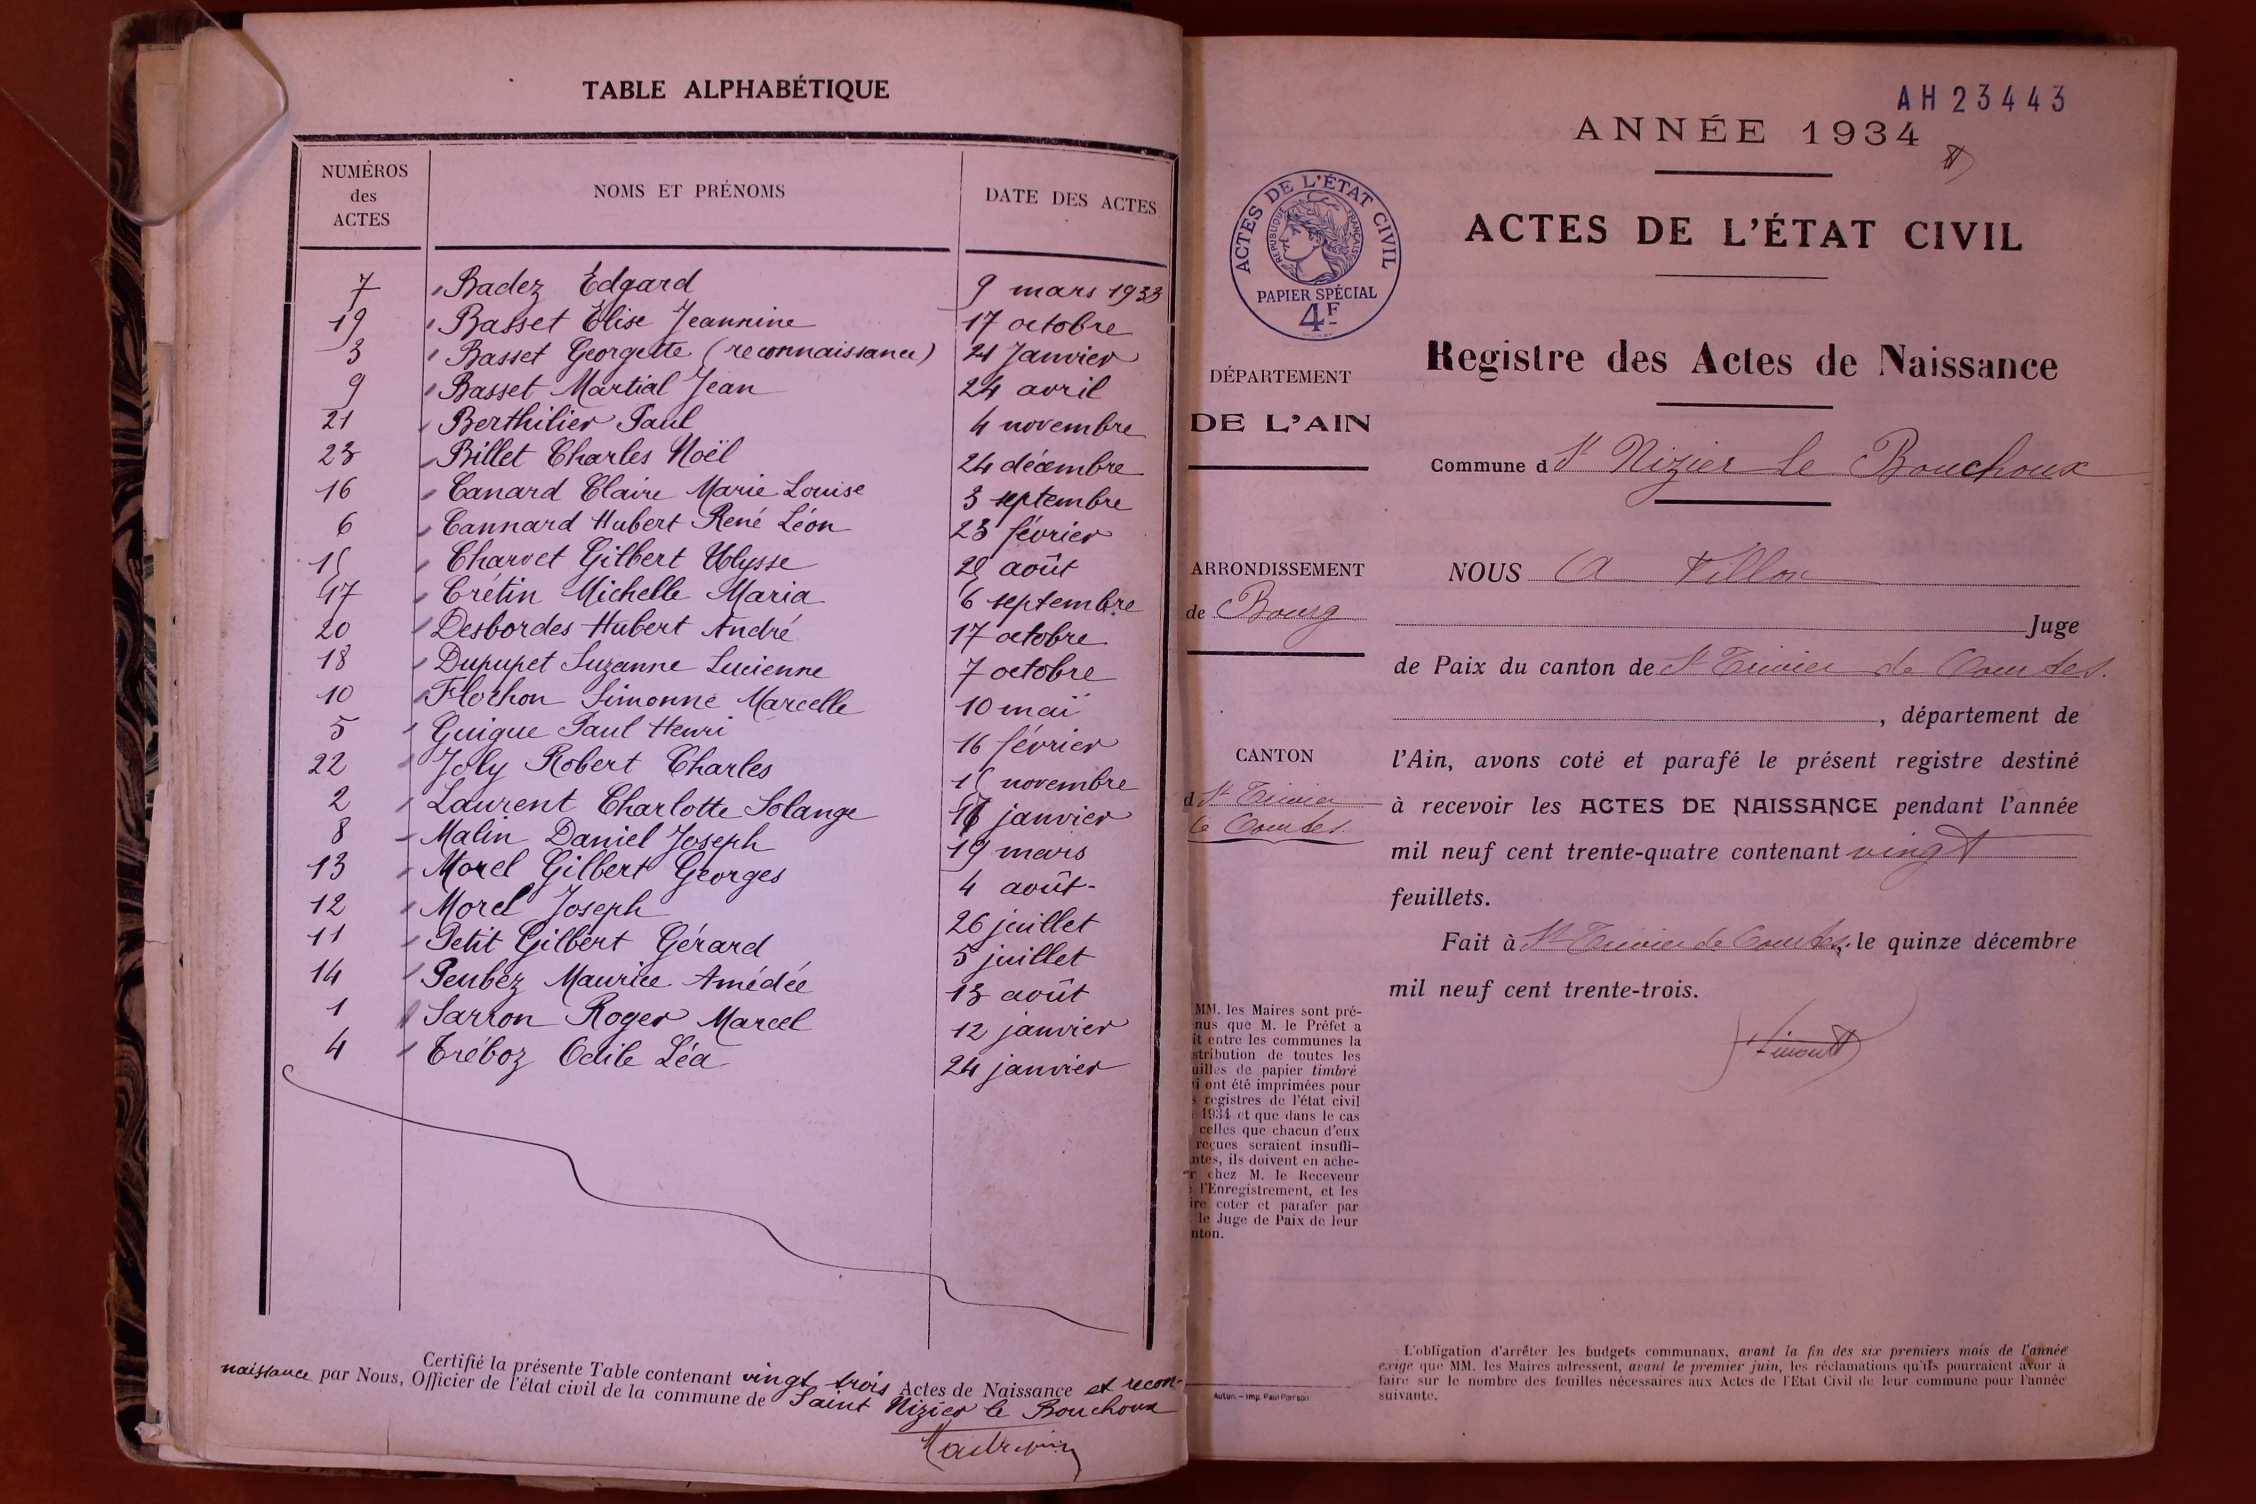 TABLE ALPHABÉTIQUE
NUMÉROS des ACTES NOMS ET PRÉNOMS DATE DES ACTES
7 Badez Edgard 9 mars 1933
19 Basset Elise Jeannine 17 octobre
3 Basset Georgette (reconnaissance) 21 Janvier
9 Basset Martial Jean 24 avril
21 Berthilier Paul 4 novembre
23 Billet Charles Noël 24 décembre
16 Canard Claire Marie Louise 3 septembre
6 Cannard Hubert René Léon 23 février
15 Charvet Gilbert Ulysse août
17 Crétin Michelle Maria 6 septembre
20 Desbordes Hubert André 17 octobre
18 Dupupet Suzanne Lucienne 7 octobre
10 Flochon Simonne Marcelle 10 mai
5 Guigue Paul Henri 16 février
22 Joly Robert Charles 15 novembre
2 Laurent Charlotte Solange janvier
8 Malin Daniel Joseph 19 mars
13 Morel Gilbert Georges 4 août
12 Morel Joseph 26 juillet
11 Petit Gilbert Gérard 5 juillet
14 Peubez Maurice Amédée 13 août
1 Sarron Roger Marcel 12 janvier
4 Tréboz Odile Léa 24 janvier
Certifié la présente Table contenant vingt trois Actes de Naissance et recon-
naissance par Nous, Officier de l'état civil de la commune de Saint Nizier le Bouchoux
AH23443
ANNÉE 1934
ACTES DE L'ÉTAT CIVIL
RÉPUBLIQUE FRANÇAISE
PAPIER SPÉCIAL
4F
ACTES DE L'ÉTAT CIVIL
Registre des Actes de Naissance
DÉPARTEMENT
DE L'AIN
Commune d St Nizier le Bouchoux
ARRONDISSEMENT
de Bourg
CANTON
d St Trivier
de Courtes.
NOUS A
Juge
de Paix du canton de St Trivier de Courtes.
, département de
l'Ain, avons coté et parafé le présent registre destiné
à recevoir les ACTES DE NAISSANCE pendant l'année
mil neuf cent trente-quatre contenant vingt
feuillets.
Fait à St Trivier de Courtes, le quinze décembre
mil neuf cent trente-trois.
MM. les Maires sont pré-
nus que M. le Préfet a
it entre les communes la
stribution de toutes les
uilles de papier timbré
i ont été imprimées pour
s registres de l'état civil
1934 et que dans le cas
celles que chacun d'eux
reçues seraient insuffi-
ntes, ils doivent en ache-
r chez M. le Receveur
l'Enregistrement, et les
ire coter et parafer par
le Juge de Paix de leur
nton.
Autun. – Imp. Paul
L'obligation d'arrêter les budgets communaux, avant la fin des six premiers mois de l'année
exige que MM. les Maires adressent, avant le premier juin, les réclamations qu'ils pourraient avoir à
faire sur le nombre des feuilles nécessaires aux Actes de l'Etat Civil de leur commune pour l'année
suivante.